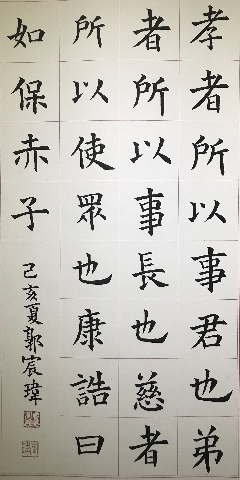 孝者所以事君也弟
者所以事長也慈者
所以使眾也康誥曰
如保赤子
己亥夏郭宸瑋